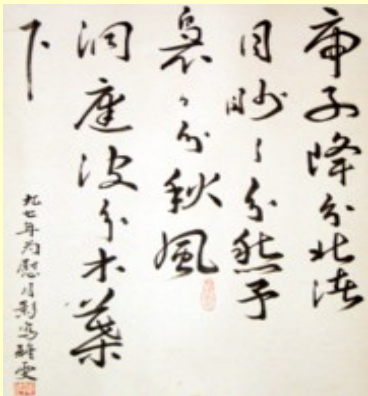 帝子降兮北渚
目眇々兮愁予
裊々兮秋風
洞庭波兮木葉
下
九七年为慰月影寫